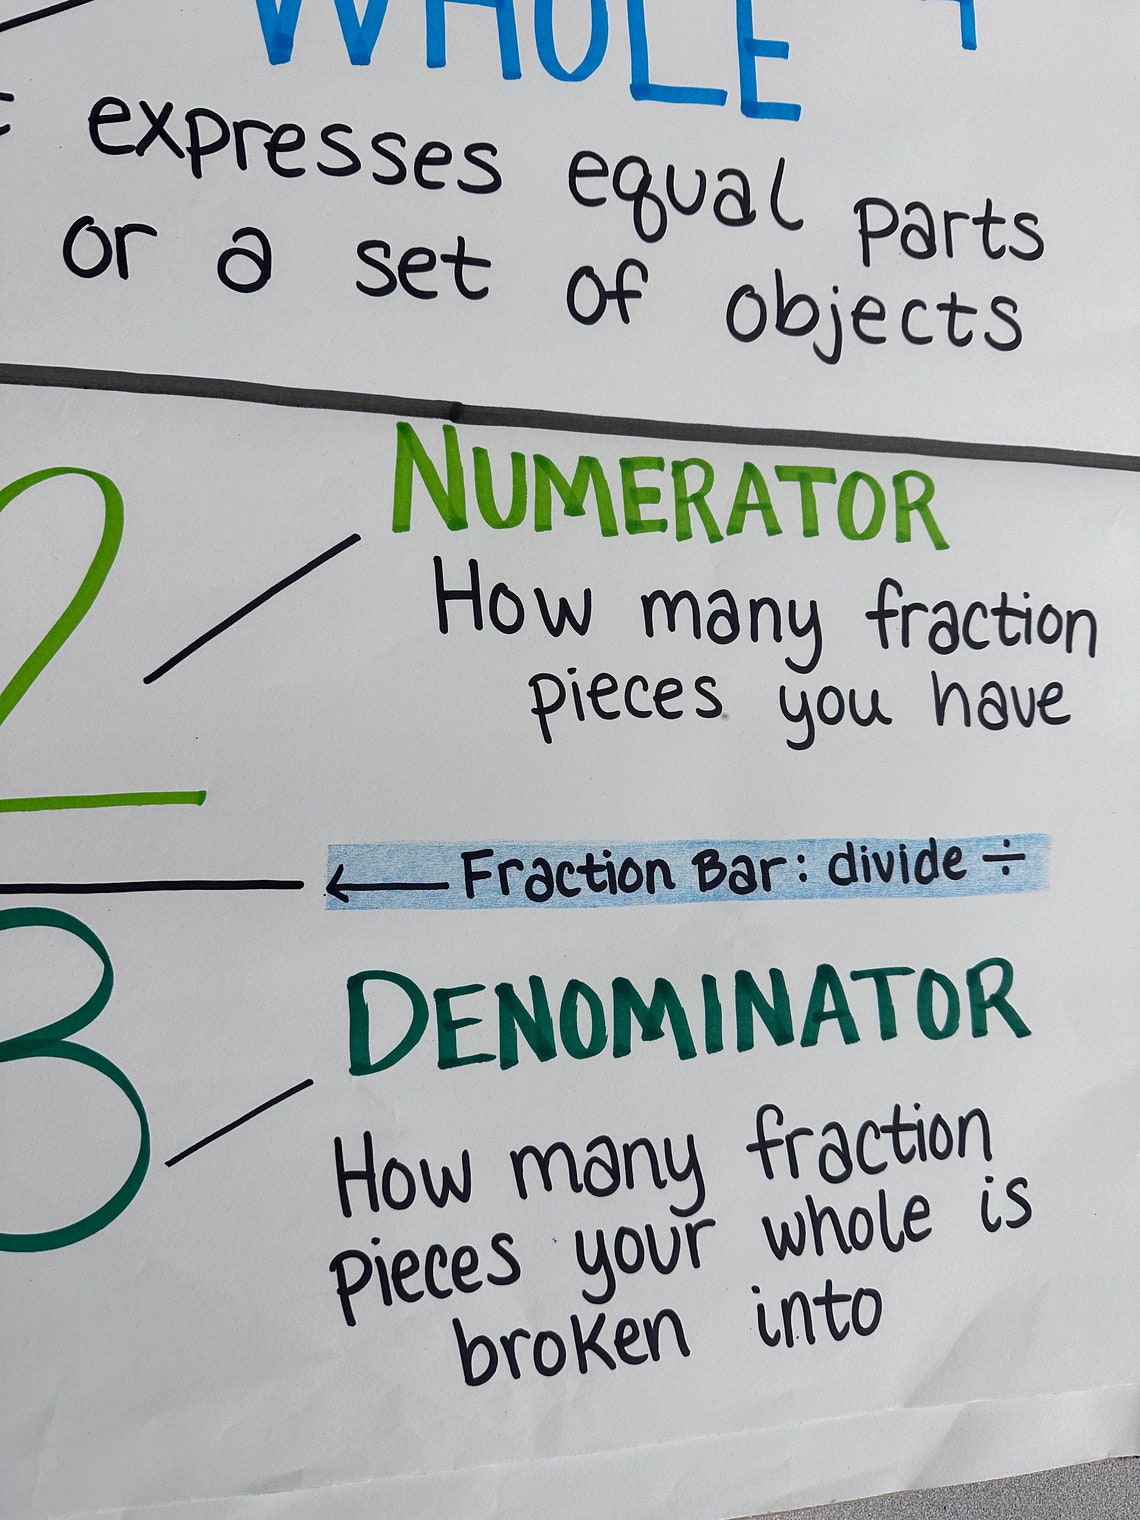 WHOLE
expresses equal parts
or a set of objects
NUMERATOR
2
How many fraction
pieces you have
← Fraction Bar: divide ÷
3
DENOMINATOR
How many fraction
pieces your whole is
broken into